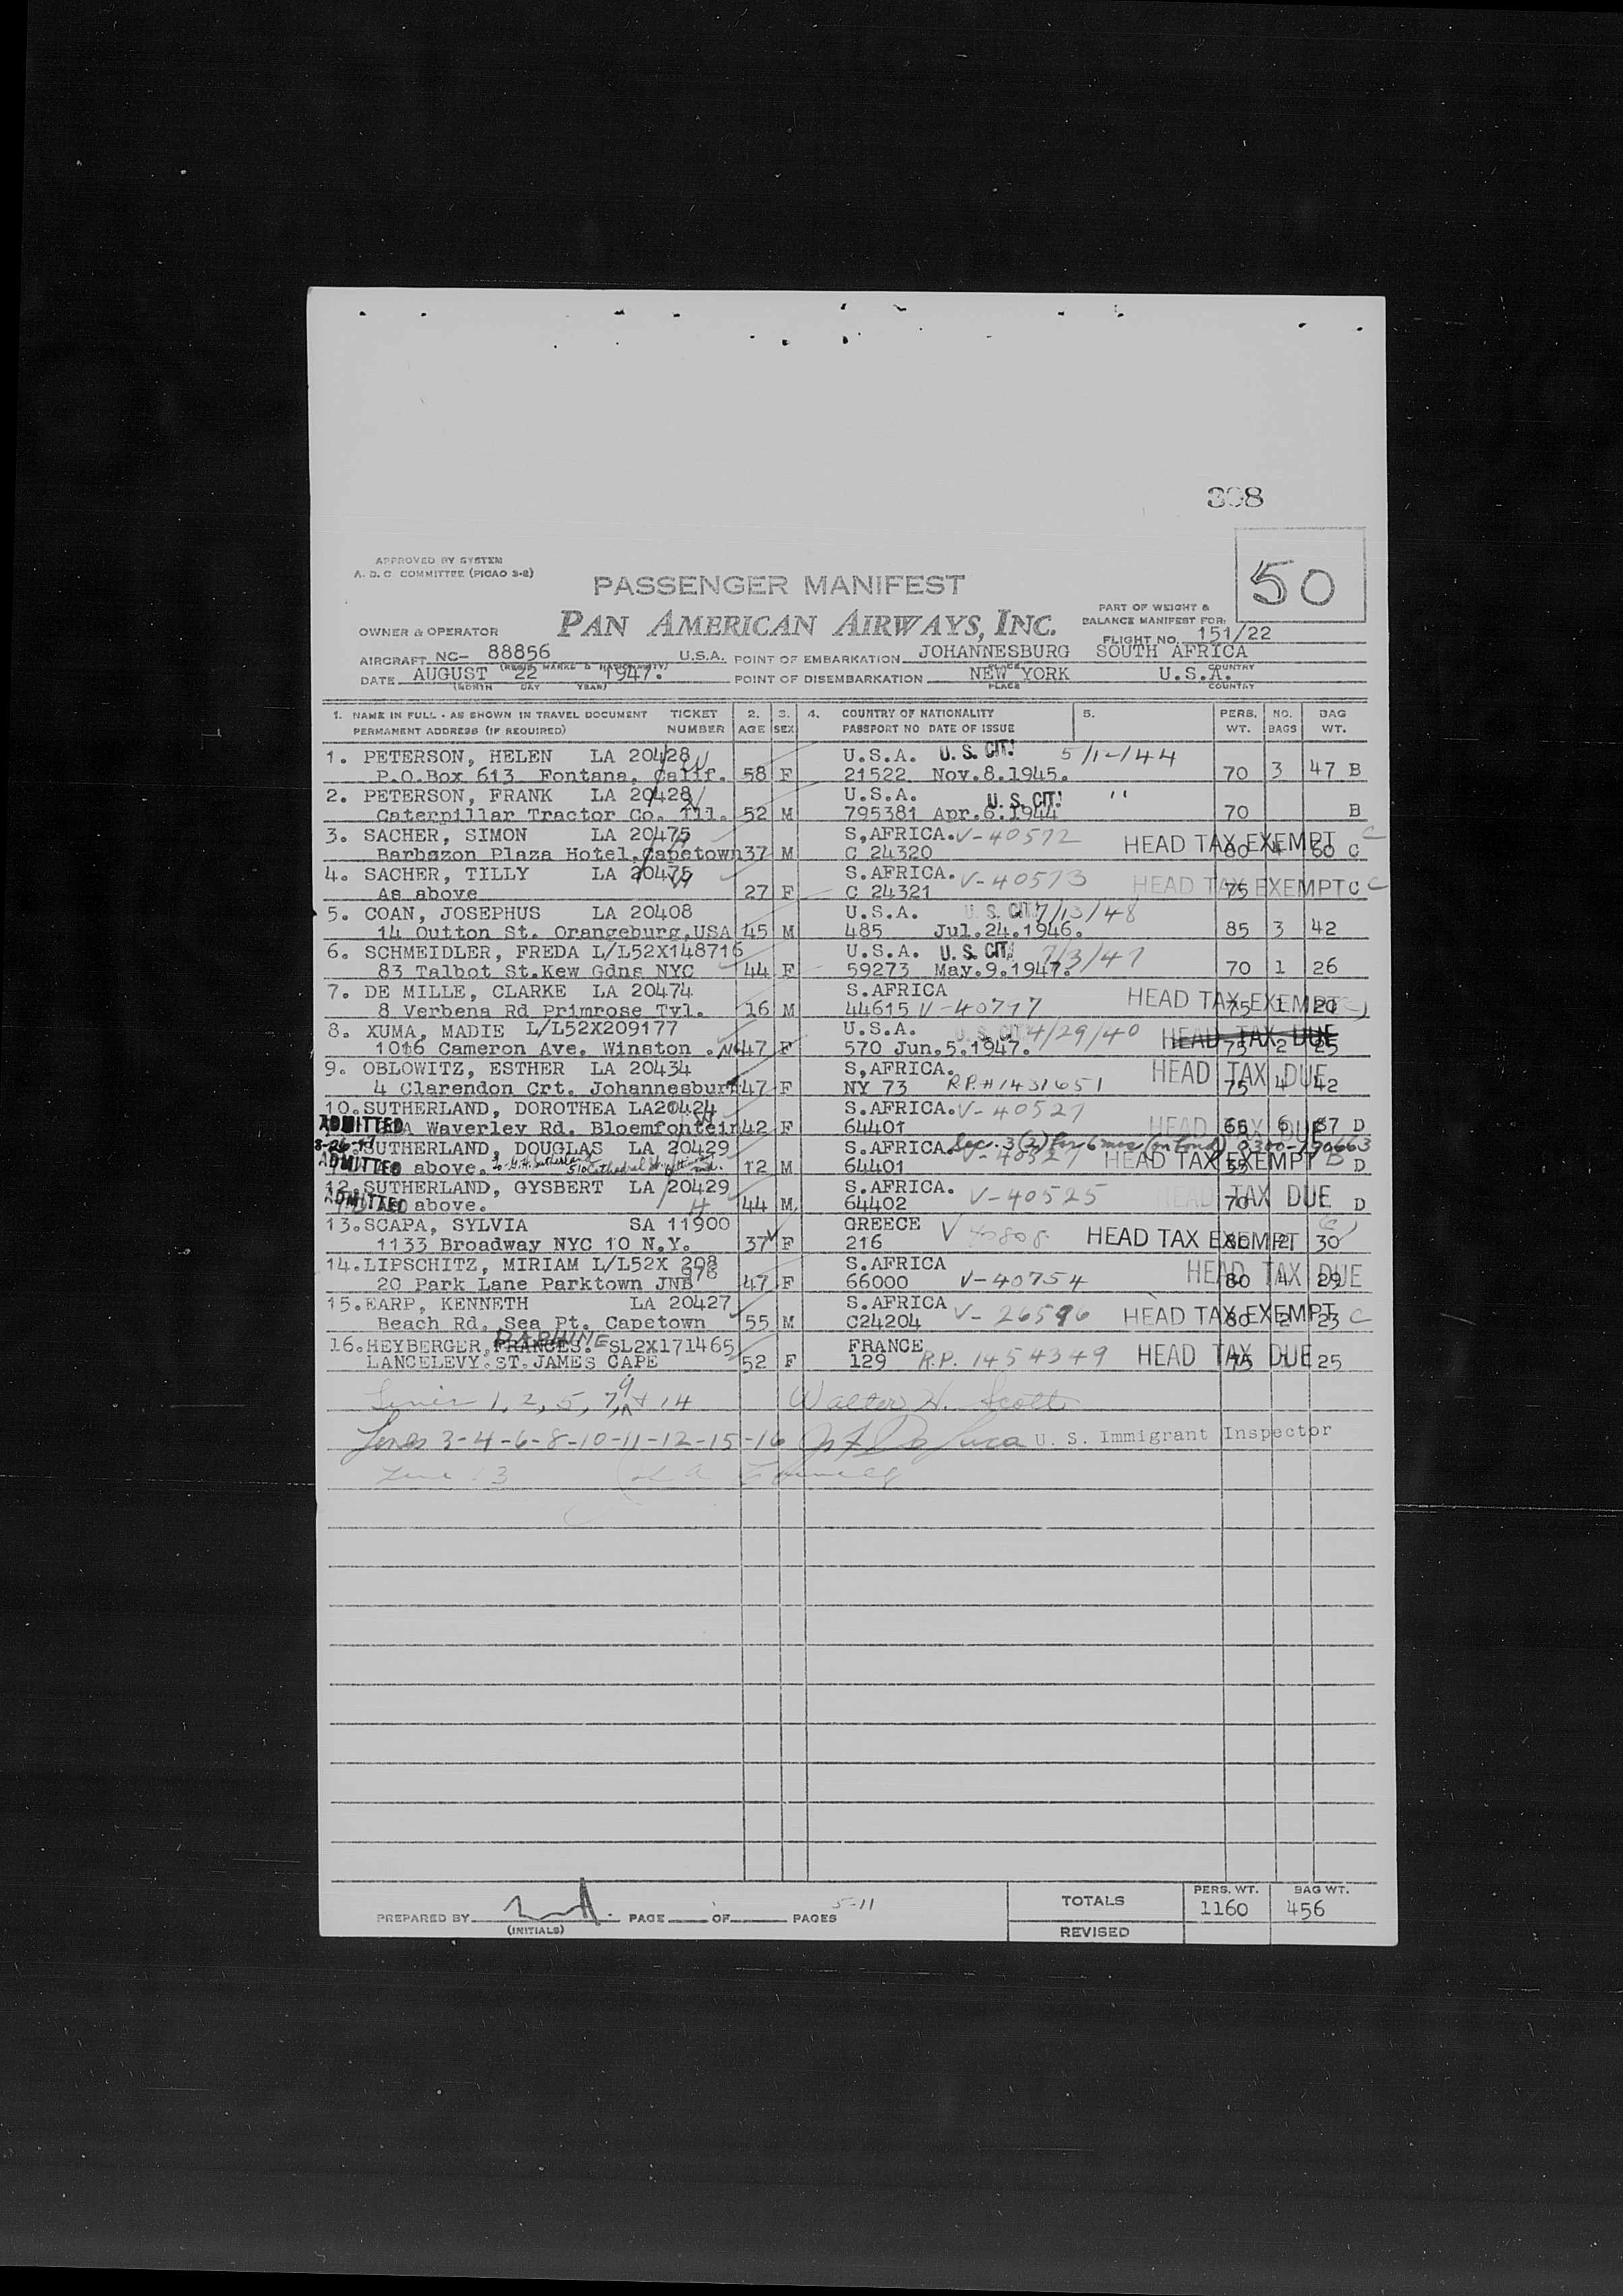 308
50
APPROVED BY SYSTEM
A. D. C COMMITTEE (PICAO 3-2)
PASSENGER MANIFEST
PAN AMERICAN AIRWAYS, INC.
OWNER & OPERATOR
PART OF WEIGHT & BALANCE MANIFEST FOR:
FLIGHT NO. 151/22
AIRCRAFT NC- 88856 U.S.A. POINT OF EMBARKATION JOHANNESBURG SOUTH AFRICA
(REGIS. MARKS & NATIONALITY) PLACE COUNTRY
DATE AUGUST 22 1947. POINT OF DISEMBARKATION NEW YORK U.S.A.
(MONTH DAY YEAR) PLACE COUNTRY
1. NAME IN FULL - AS SHOWN IN TRAVEL DOCUMENT TICKET 2. 3. 4. COUNTRY OF NATIONALITY 5. PERS. NO. BAG
PERMANENT ADDRESS (IF REQUIRED) NUMBER AGE SEX PASSPORT NO DATE OF ISSUE WT. BAGS WT.
1. PETERSON, HELEN LA 20428 U.S.A. U. S. CIT. 5/12/44
P.O.Box 613 Fontana, Calif. 58 F 21522 Nov.8.1945. 70 3 47 B
2. PETERSON, FRANK LA 20428 U.S.A. U. S. CIT. "
Caterpillar Tractor Co. Ill. 52 M 795381 Apr.6.1944 70 B
3. SACHER, SIMON LA 20475 S,AFRICA. V-40572 HEAD TAX EXEMPT C
Barbazon Plaza Hotel,Capetown 37 M C 24320 80 4 60 C
4. SACHER, TILLY LA 20475 S.AFRICA. V-40573 HEAD TAX EXEMPT C
As above 27 F C 24321 75 C
5. COAN, JOSEPHUS LA 20408 U.S.A. U. S. CIT. 7/13/48
14 Outton St. Orangeburg,USA 45 M 485 Jul.24.1946. 85 3 42
6. SCHMEIDLER, FREDA L/L52X148716 U.S.A. U. S. CIT. 7/3/47
83 Talbot St.Kew Gdns NYC 44 F 59273 May.9.1947. 70 1 26
7. DE MILLE, CLARKE LA 20474 S.AFRICA HEAD TAX EXEMPT
8 Verbena Rd Primrose Tvl. 16 M 44615 V-40797 75 1 20
8. XUMA, MADIE L/L52X209177 U.S.A. U. S. CIT. 4/29/40 HEAD TAX DUE
1016 Cameron Ave. Winston .NC 47 F 570 Jun.5.1947. 75 2 25
9. OBLOWITZ, ESTHER LA 20434 S,AFRICA. HEAD TAX DUE
4 Clarendon Crt. Johannesburg 47 F NY 73 R.P.# 1431651 75 4 42
10.SUTHERLAND, DOROTHEA LA20424 S.AFRICA. V-40527 HEAD TAX DUE
ADMITTED Waverley Rd. Bloemfontein 42 F 64401 65 6 87 D
8-26-47 SUTHERLAND, DOUGLAS LA 20429 S.AFRICA. Sec. 3(2) for 6 mos (on bond) 0300-790663
ADMITTED above. 12 M 64401 V-40527 HEAD TAX EXEMPT 55 D
12.SUTHERLAND, GYSBERT LA 20429 S.AFRICA. V-40525 HEAD TAX DUE
ADMITTED above. 44 M. 64402 70 D
13.SCAPA, SYLVIA SA 11900 GREECE
1133 Broadway NYC 10 N.Y. 37 F 216 V 40808 HEAD TAX EXEMPT 80 2 30
14.LIPSCHITZ, MIRIAM L/L52X 208 S.AFRICA HEAD TAX DUE
976
20 Park Lane Parktown JNB 47 F 66000 V-40754 80 4 29
15.EARP, KENNETH LA 20427 S.AFRICA V-26596 HEAD TAX EXEMPT C
Beach Rd. Sea Pt. Capetown 55 M C24204 80 2 23
DAPHINE
16.HEYBERGER, FRANCES. SL2X171465 FRANCE
LANCELEVY. ST.JAMES CAPE 52 F 129 R.P. 1454349 HEAD TAX DUE 75 1 25
Lines 1, 2, 5, 7, 9 & 14 Walter H. Scott
Lines 3-4-6-8-10-11-12-15-16 U. S. Immigrant Inspector
Line 13
TOTALS PERS. WT. BAG WT.
1160 456
PREPARED BY PAGE OF PAGES 5-11
(INITIALS) REVISED